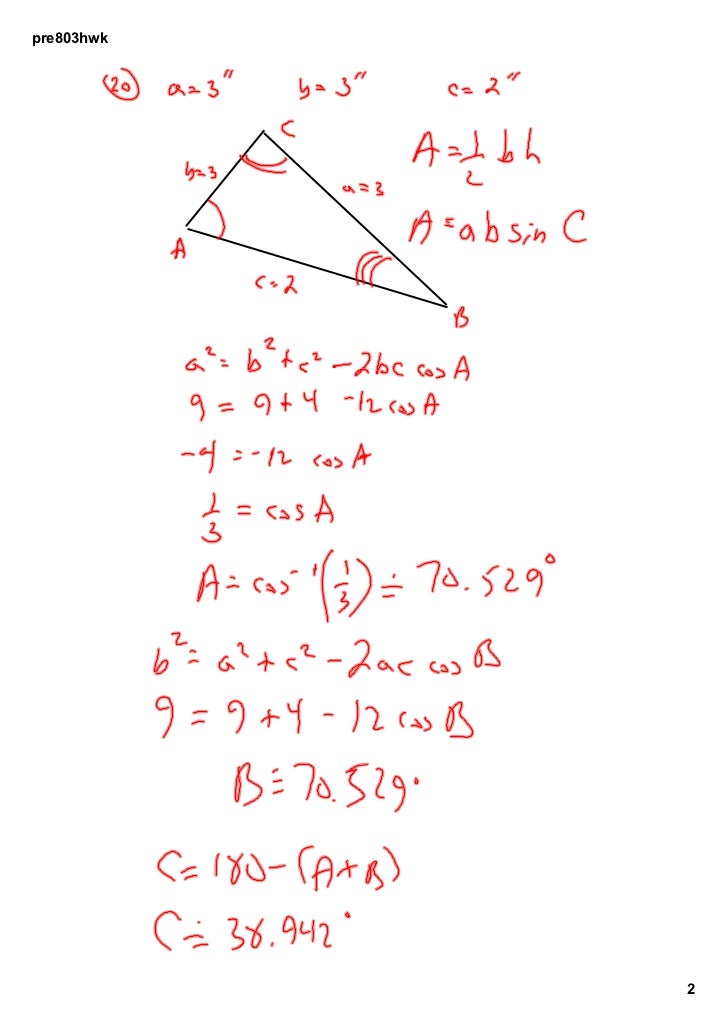 pre803hwk
(20) a=3" b=3" c=2"
C
A=1/2 bh
b=3
a=3
A=ab sin C
A
c=2
B
a²=b²+c²-2bc cos A
9=9+4-12 cos A
-4=-12 cos A
1/3=cos A
A=cos⁻¹(1/3)≐70.529°
b²=a²+c²-2ac cos B
9=9+4-12 cos B
B≐70.529°
C=180-(A+B)
C≐38.942°
2